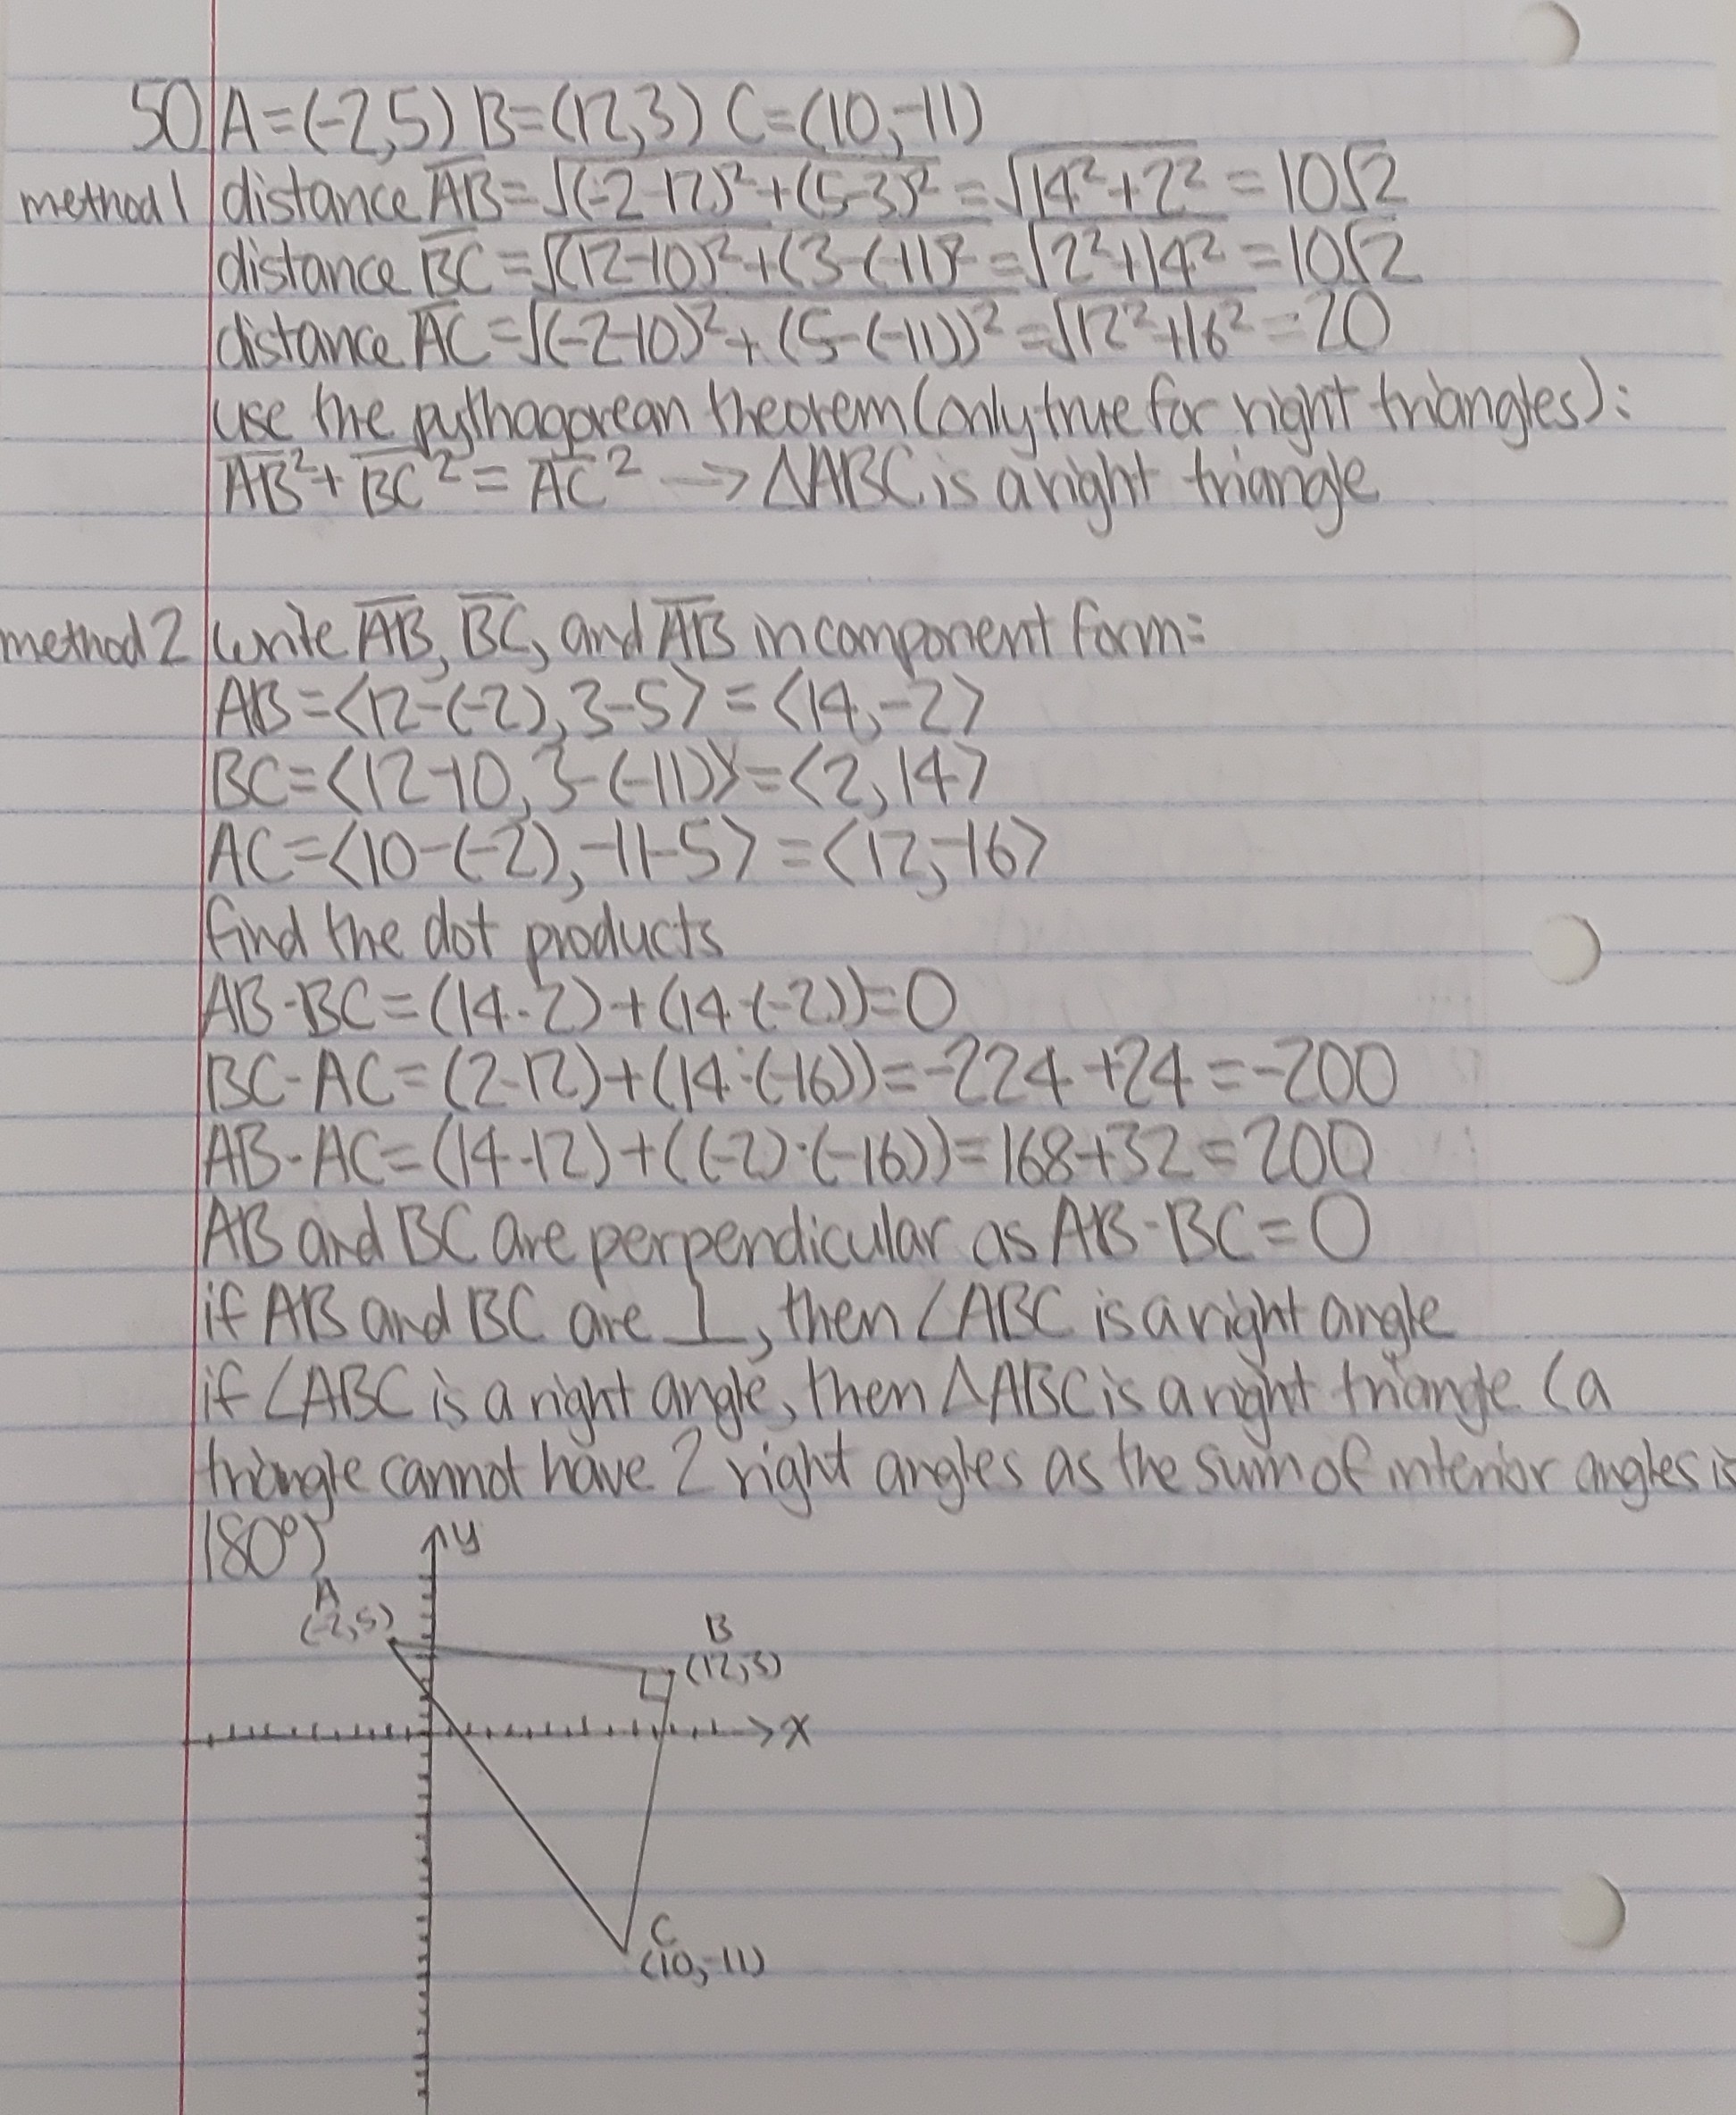 50 A=(-2,5) B=(12,3) C=(10,-11)
method 1 distance A̅B̅=√(-2-12)²+(5-3)²=√14²+2²=10√2
distance B̅C̅=√(12-10)²+(3-(-11))²=√2²+14²=10√2
distance A̅C̅=√(-2-10)²+(5-(-11))²=√12²+16²=20
use the pythagorean theorem (only true for right triangles):
A̅B̅²+B̅C̅²=A̅C̅² → △ABC is a right triangle
method 2 write A̅B̅, B̅C̅, and A̅B̅ in component form:
AB=⟨12-(-2),3-5⟩=⟨14,-2⟩
BC=⟨12-10,3-(-11)⟩=⟨2,14⟩
AC=⟨10-(-2),-11-5⟩=⟨12,-16⟩
find the dot products
AB·BC=(14·2)+(14·(-2))=0
BC·AC=(2·12)+(14·(-16))=-224+24=-200
AB·AC=(14·12)+((-2)·(-16))=168+32=200
AB and BC are perpendicular as AB·BC=0
if AB and BC are ⊥, then ∠ABC is a right angle
if ∠ABC is a right angle, then △ABC is a right triange (a
triangle cannot have 2 right angles as the sum of interior angles is
180°)
y
A
(-2,5)
B
(12,3)
x
C
(10,-11)